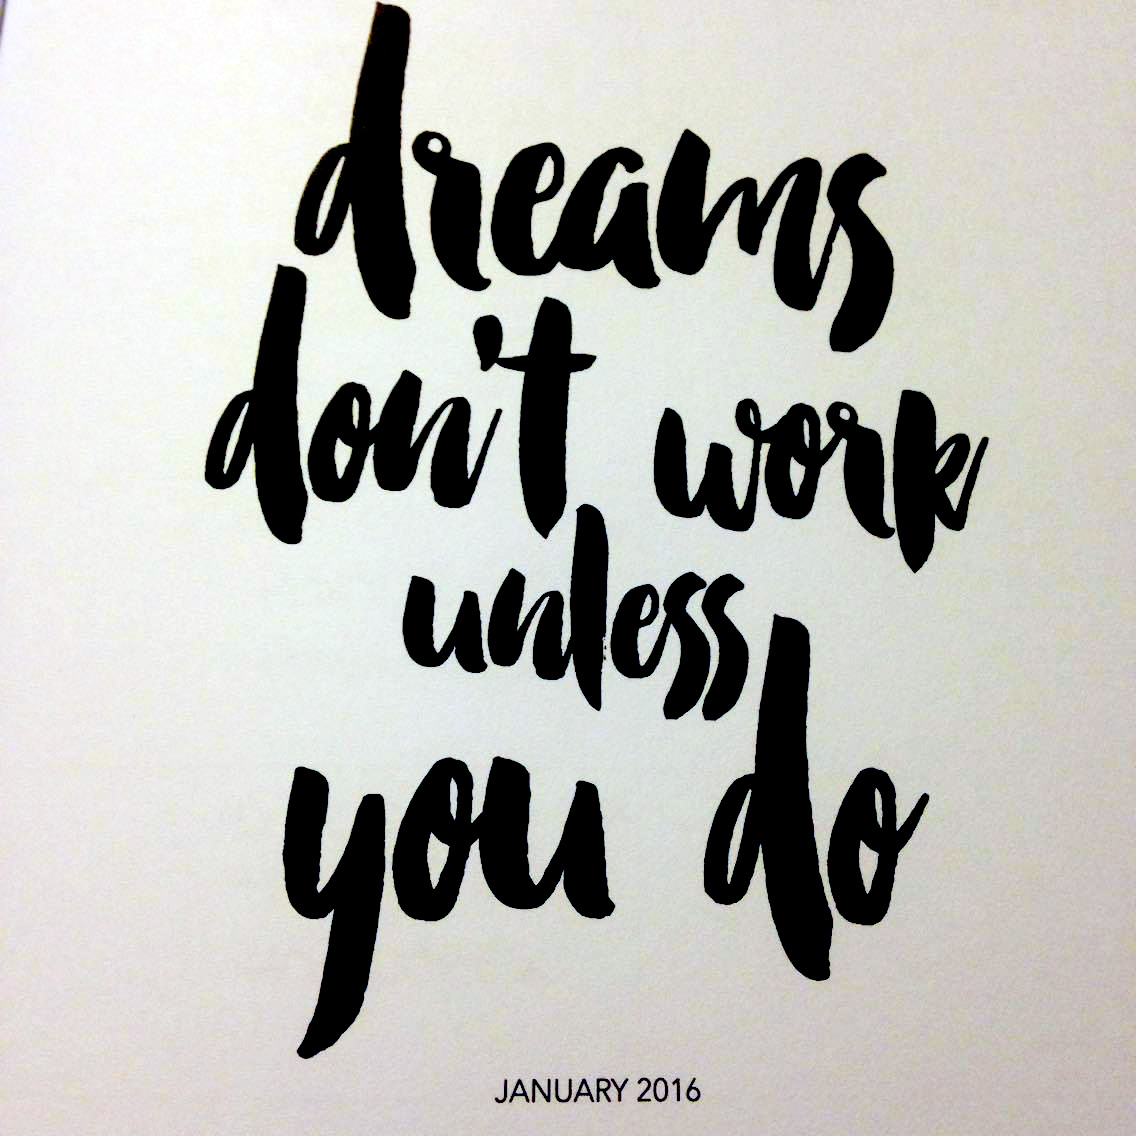 dreams
don't work
unless
you do
JANUARY 2016